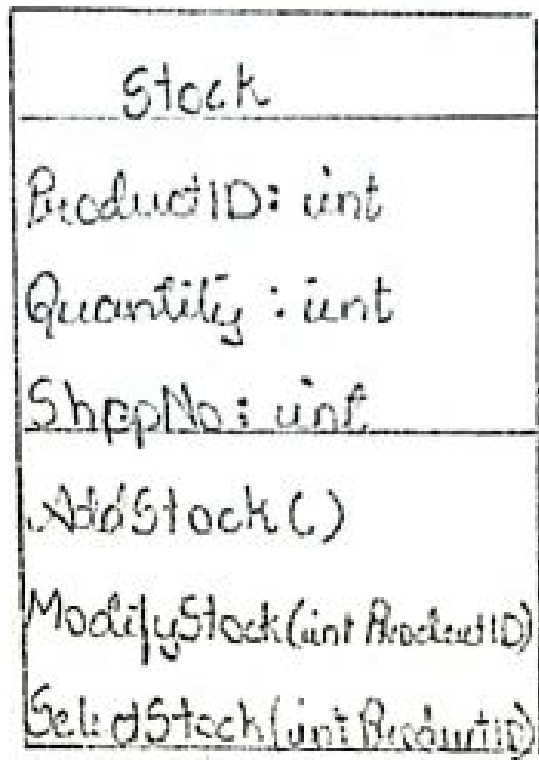 Stock
ProductID: int
Quantity : int
ShopNo: int
AddStock()
ModifyStock(int ProductID)
SelectStock(int ProductID)